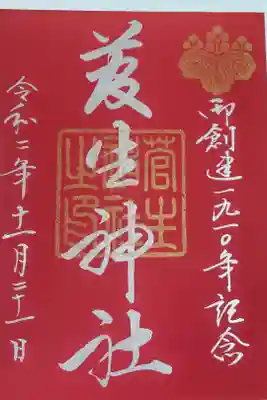 御創建一九一〇年記念
菅生神社
菅生神社之印
令和二年十一月二十一日